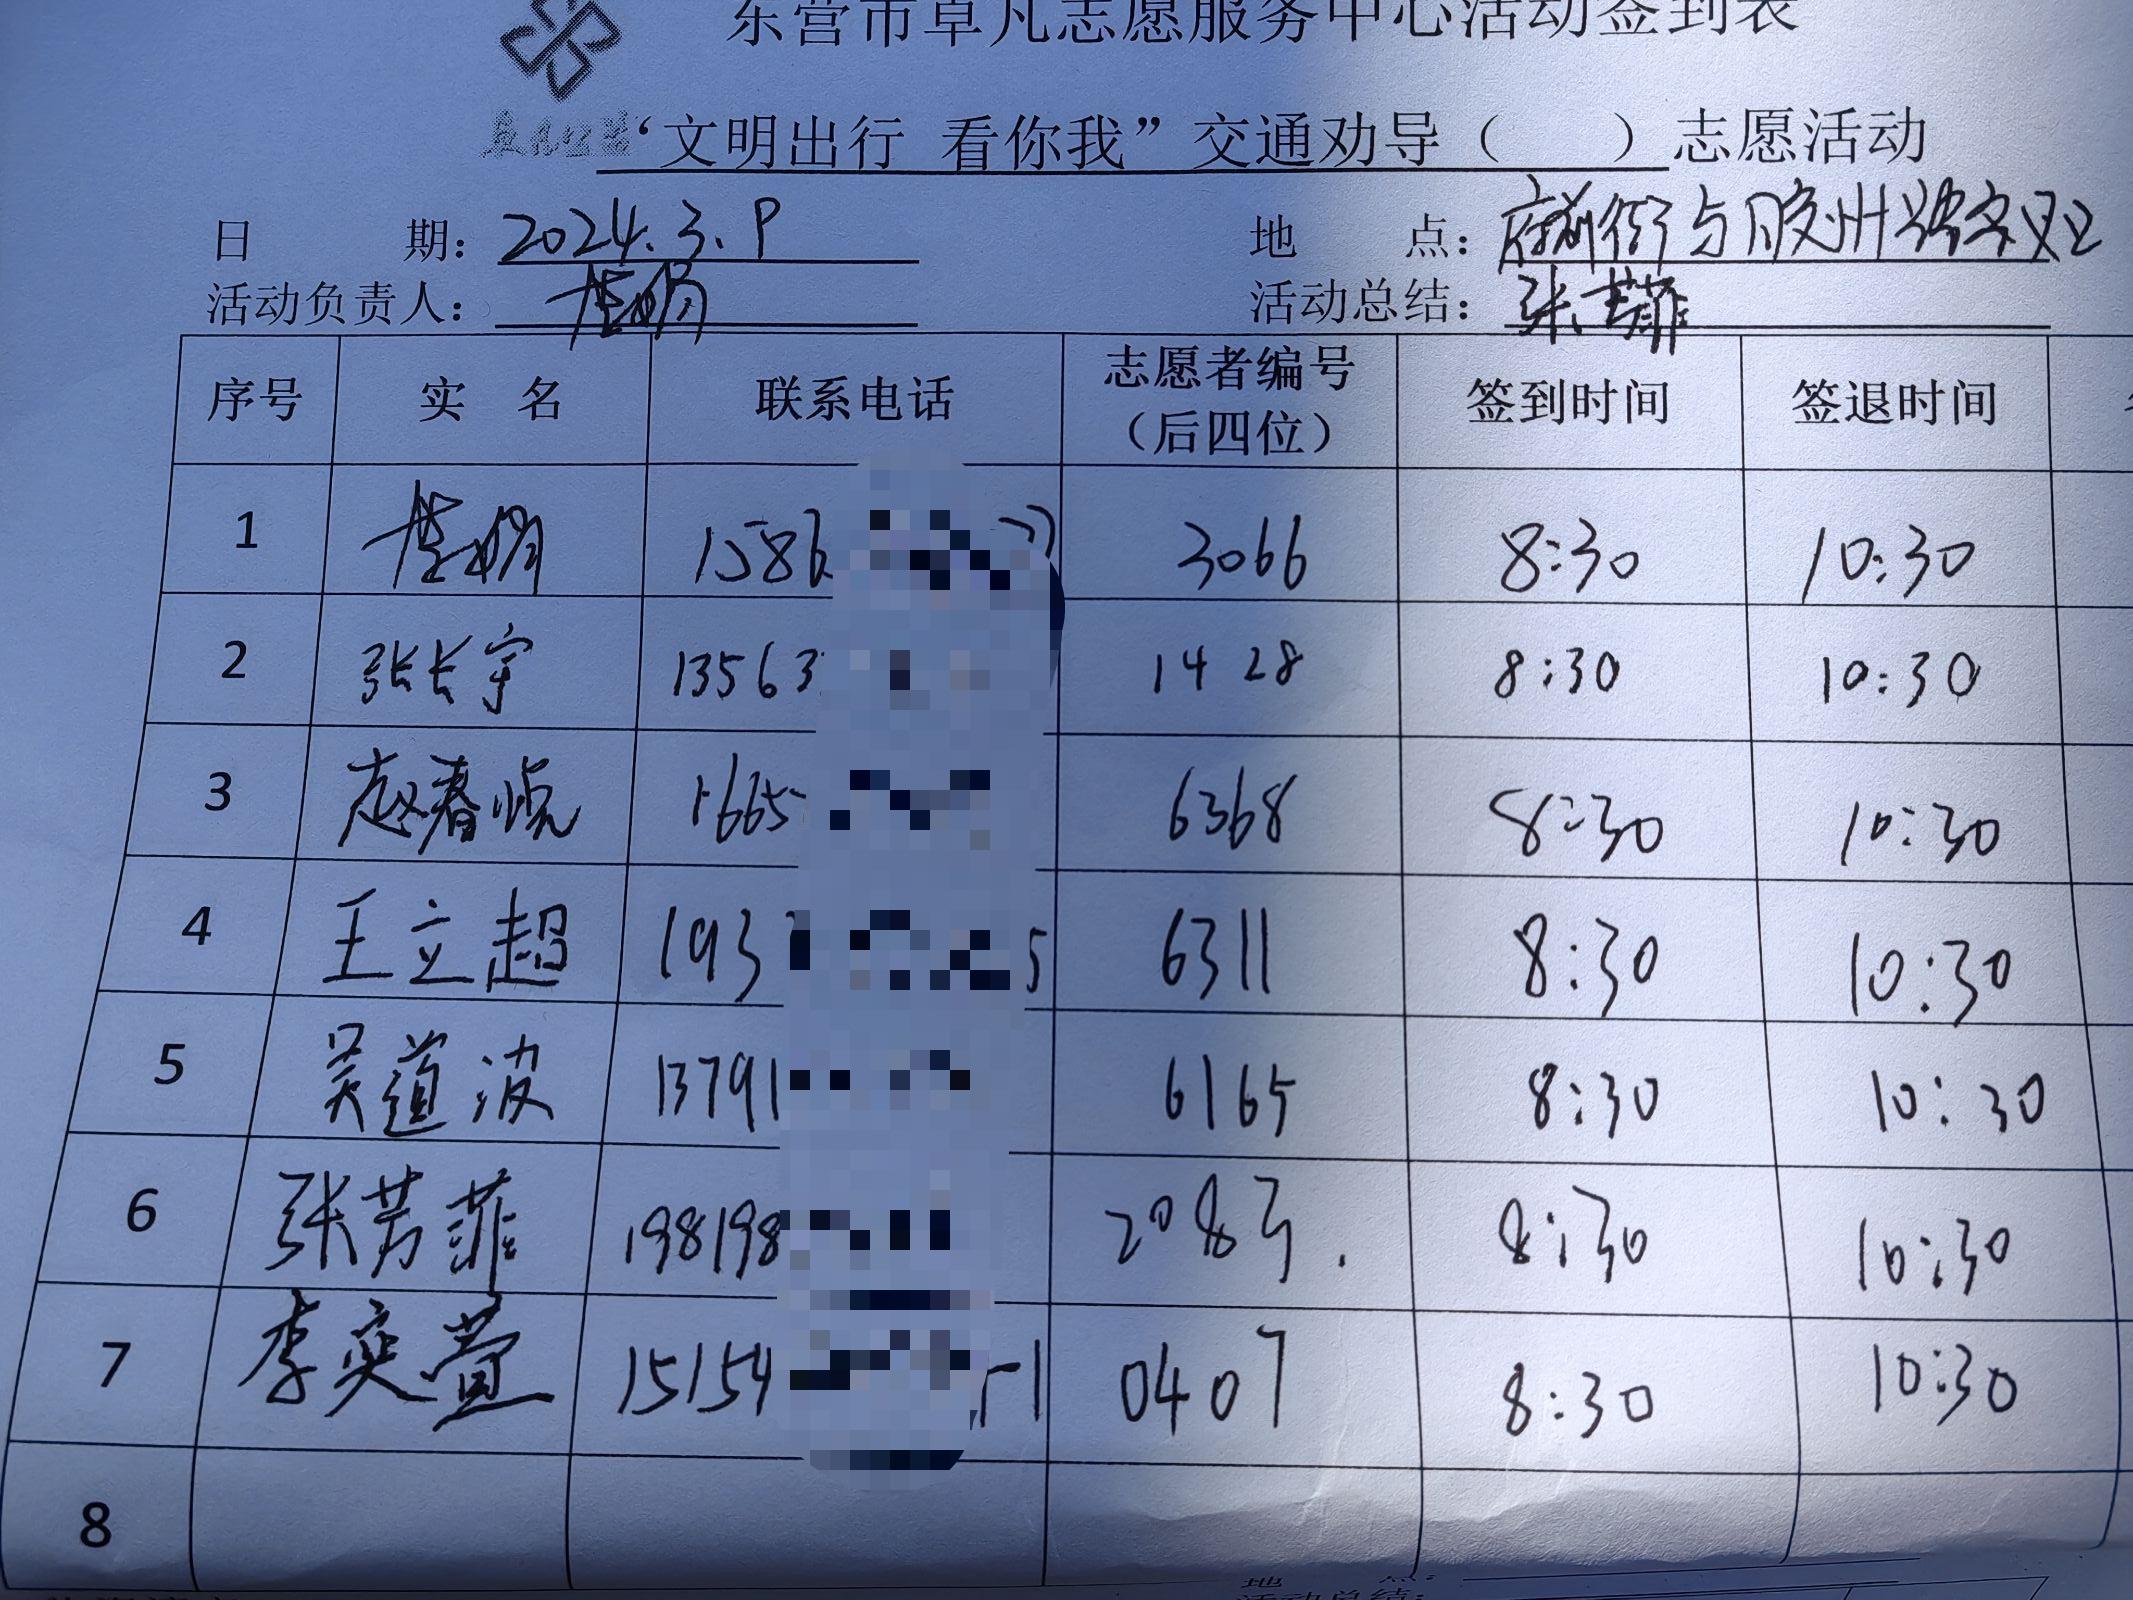 东营市卓凡志愿服务中心活动签到表
“文明出行 看你我”交通劝导（ ）志愿活动
日 期：2024.3.9 地 点：府前街与胶州路交叉口
活动负责人： 活动总结：张芳菲
序号 实 名 联系电话 志愿者编号（后四位） 签到时间 签退时间
1 1586 3066 8:30 10:30
2 张长宇 13563 1428 8:30 10:30
3 赵春悦 1665 6368 8:30 10:30
4 王立超 193 5 6311 8:30 10:30
5 吴道波 13791 6165 8:30 10:30
6 张芳菲 198198 2083. 8:30 10:30
7 李奕萱 15154 1 0407 8:30 10:30
8
地 点：
活动总结：